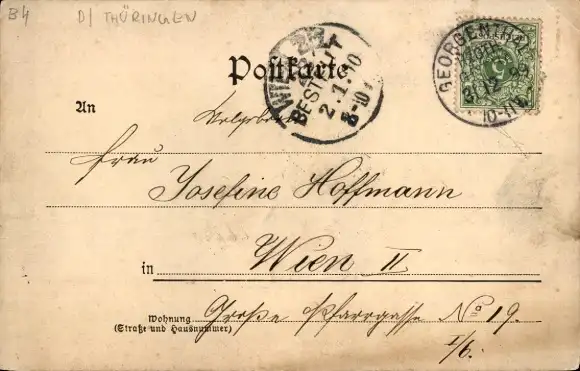 B4 D/ THÜRINGEN
Postkarte
WIEN 2/1
BESTELLT
2.1.10
GEORGENTHAL
31 12 99
10-11V.
An
Wolgeboren
Frau
Josefine Hoffmann
in Wien II
Wohnung Große Pfarrgasse No 19.
(Straße und Hausnummer)
I/6.